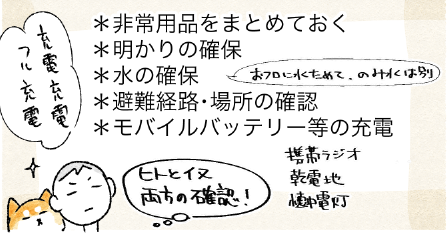 ＊非常用品をまとめておく
＊明かりの確保
＊水の確保
おフロに水ためて、のみ水は別
＊避難経路・場所の確認
＊モバイルバッテリー等の充電
充電充電
フル充電
携帯ラジオ
乾電地
懐中電灯
ヒトとイヌ
両方の確認!